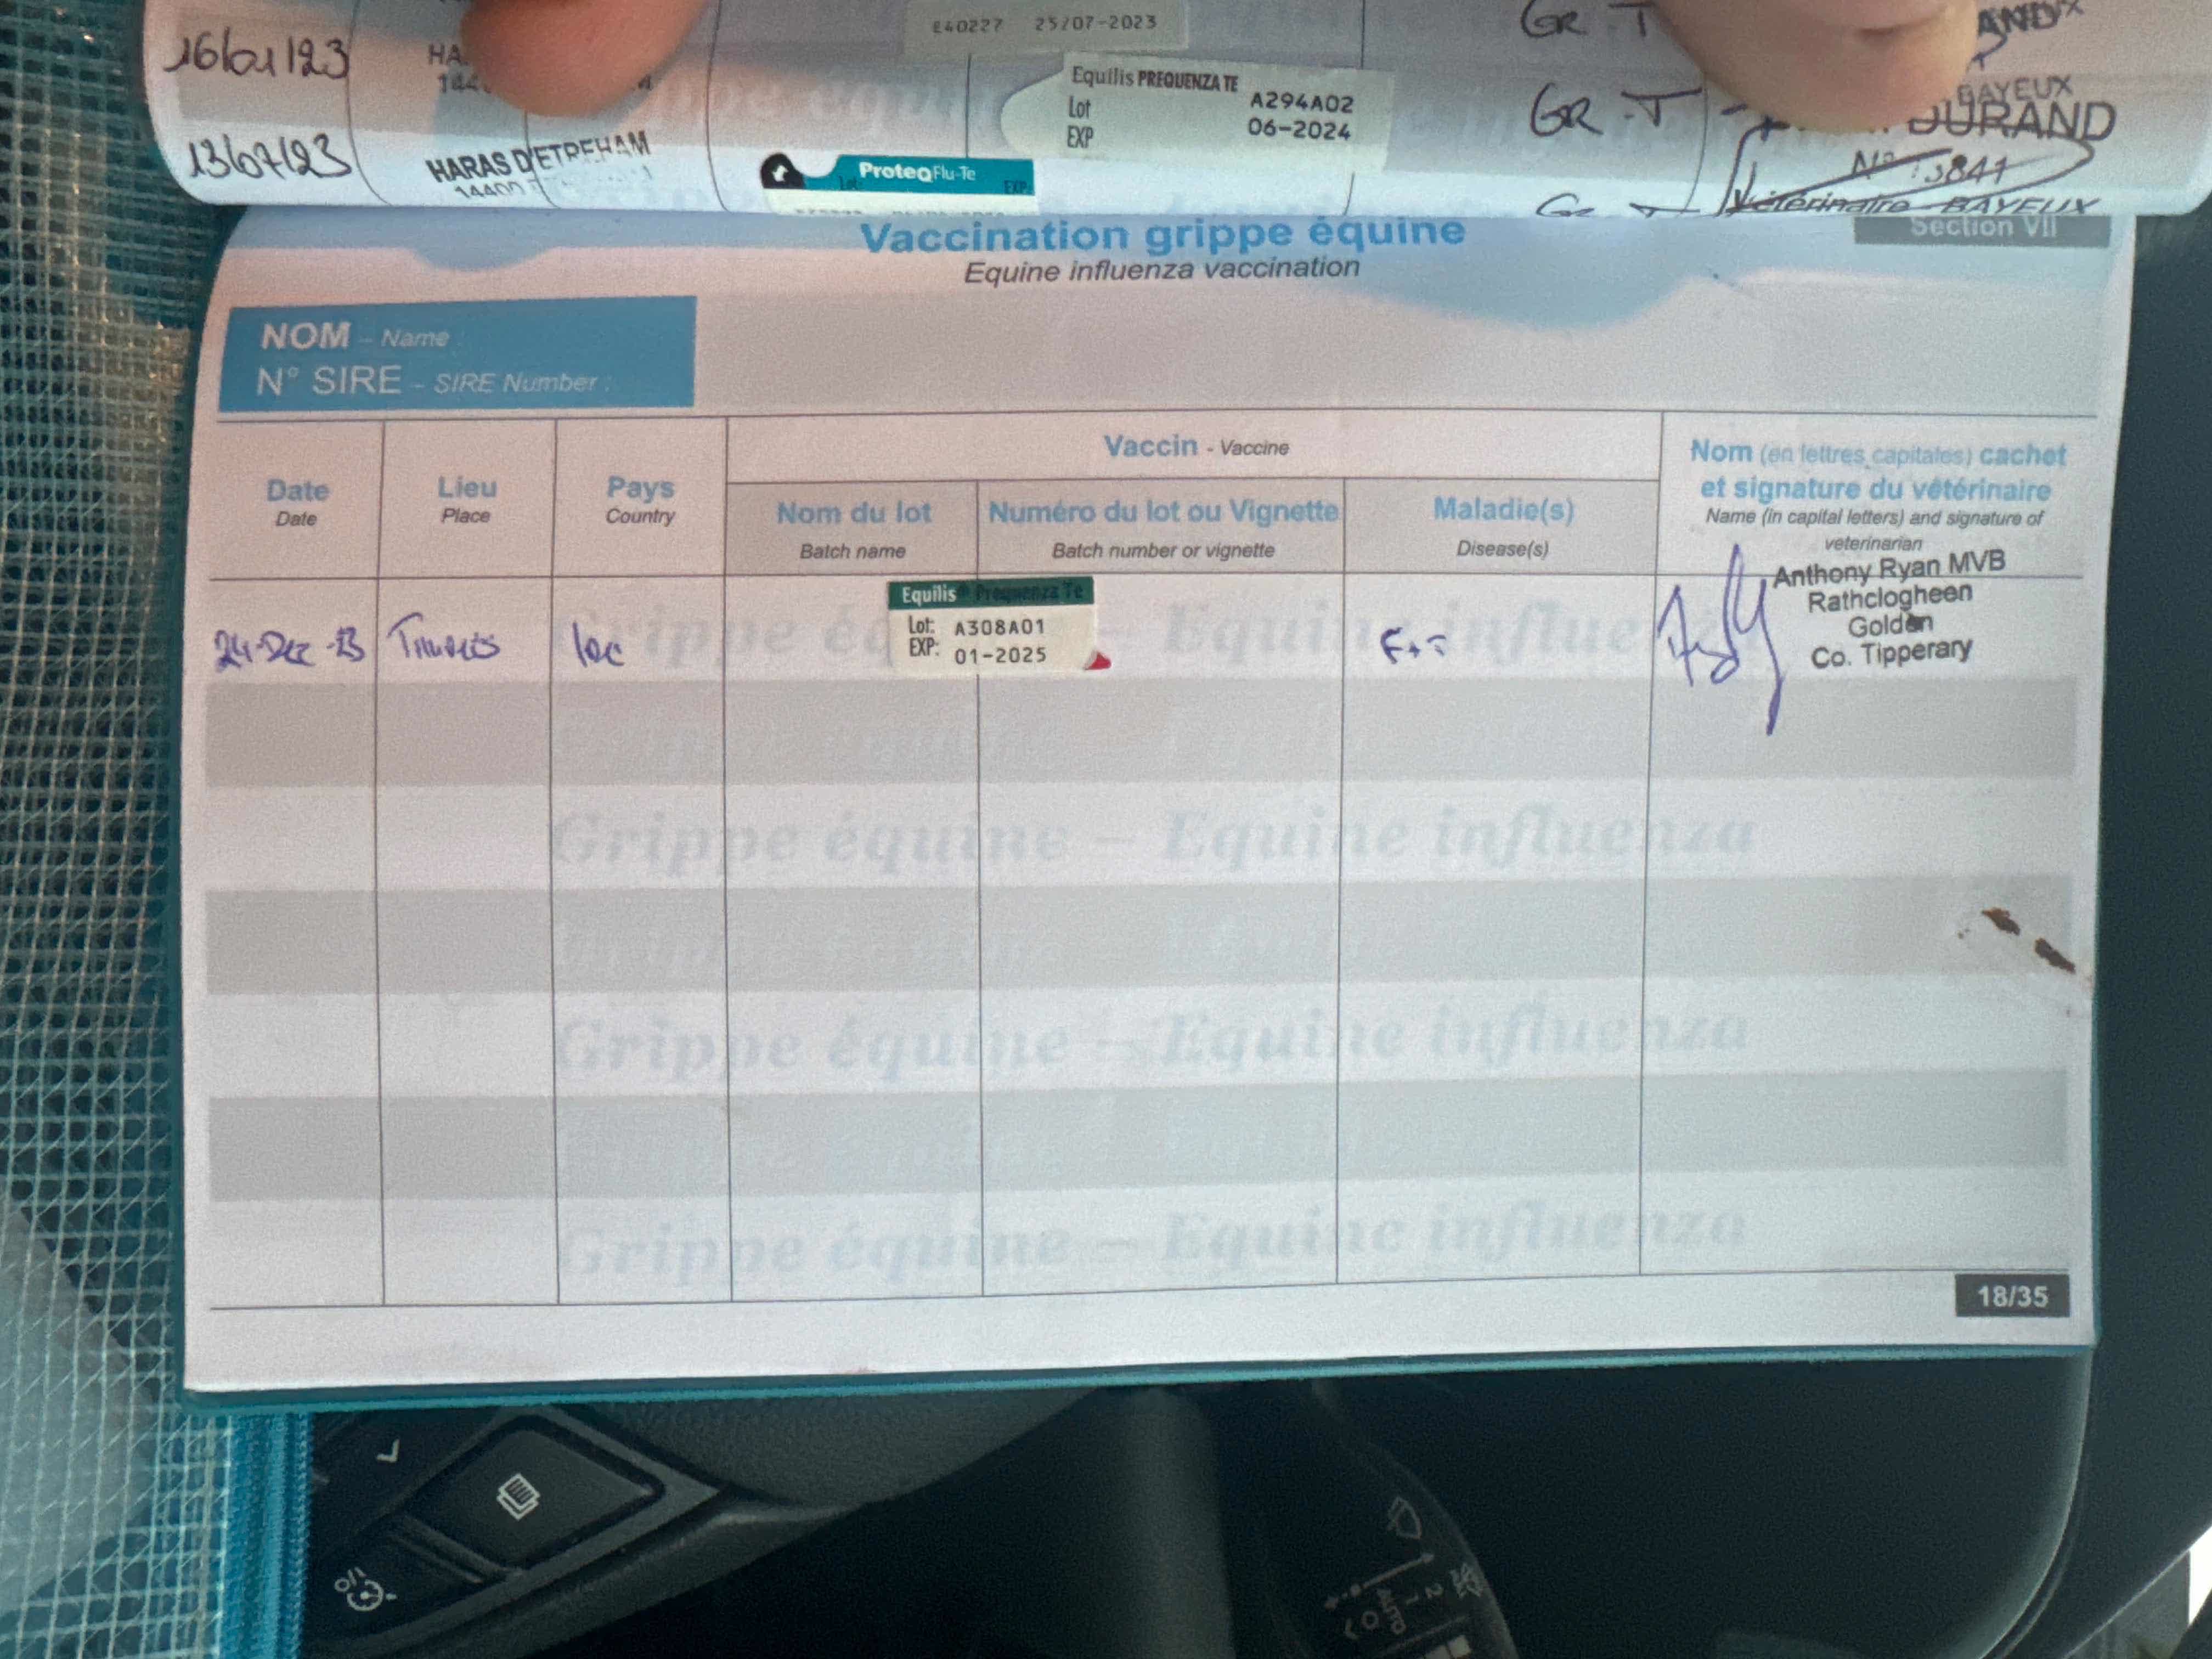 E40227 25/07-2023
GR.T
16/01/23
HA
Equilis PREQUENZA TE
Lot A294A02
EXP 06-2024
GR.T
BAYEUX
DURAND
13/07/23
HARAS D'ETREHAM
14400
ProteqFlu-Te
EXP
N° 13841
Vétérinaire BAYEUX
Vaccination grippe équine
Section VII
Equine influenza vaccination
NOM - Name :
N° SIRE - SIRE Number :
Vaccin - Vaccine
Date
Date
Lieu
Place
Pays
Country
Nom du lot
Batch name
Numéro du lot ou Vignette
Batch number or vignette
Maladie(s)
Disease(s)
Nom (en lettres capitales) cachet
et signature du vétérinaire
Name (in capital letters) and signature of
veterinarian
24-Dec-23
Thurles
Equilis Prequenza Te
Lot: A308A01
EXP: 01-2025
F+T
Anthony Ryan MVB
Rathclogheen
Golden
Co. Tipperary
Grippe équine – Equine influenza
Grippe équine – Equine influenza
Grippe équine – Equine influenza
Grippe équine – Equine influenza
18/35